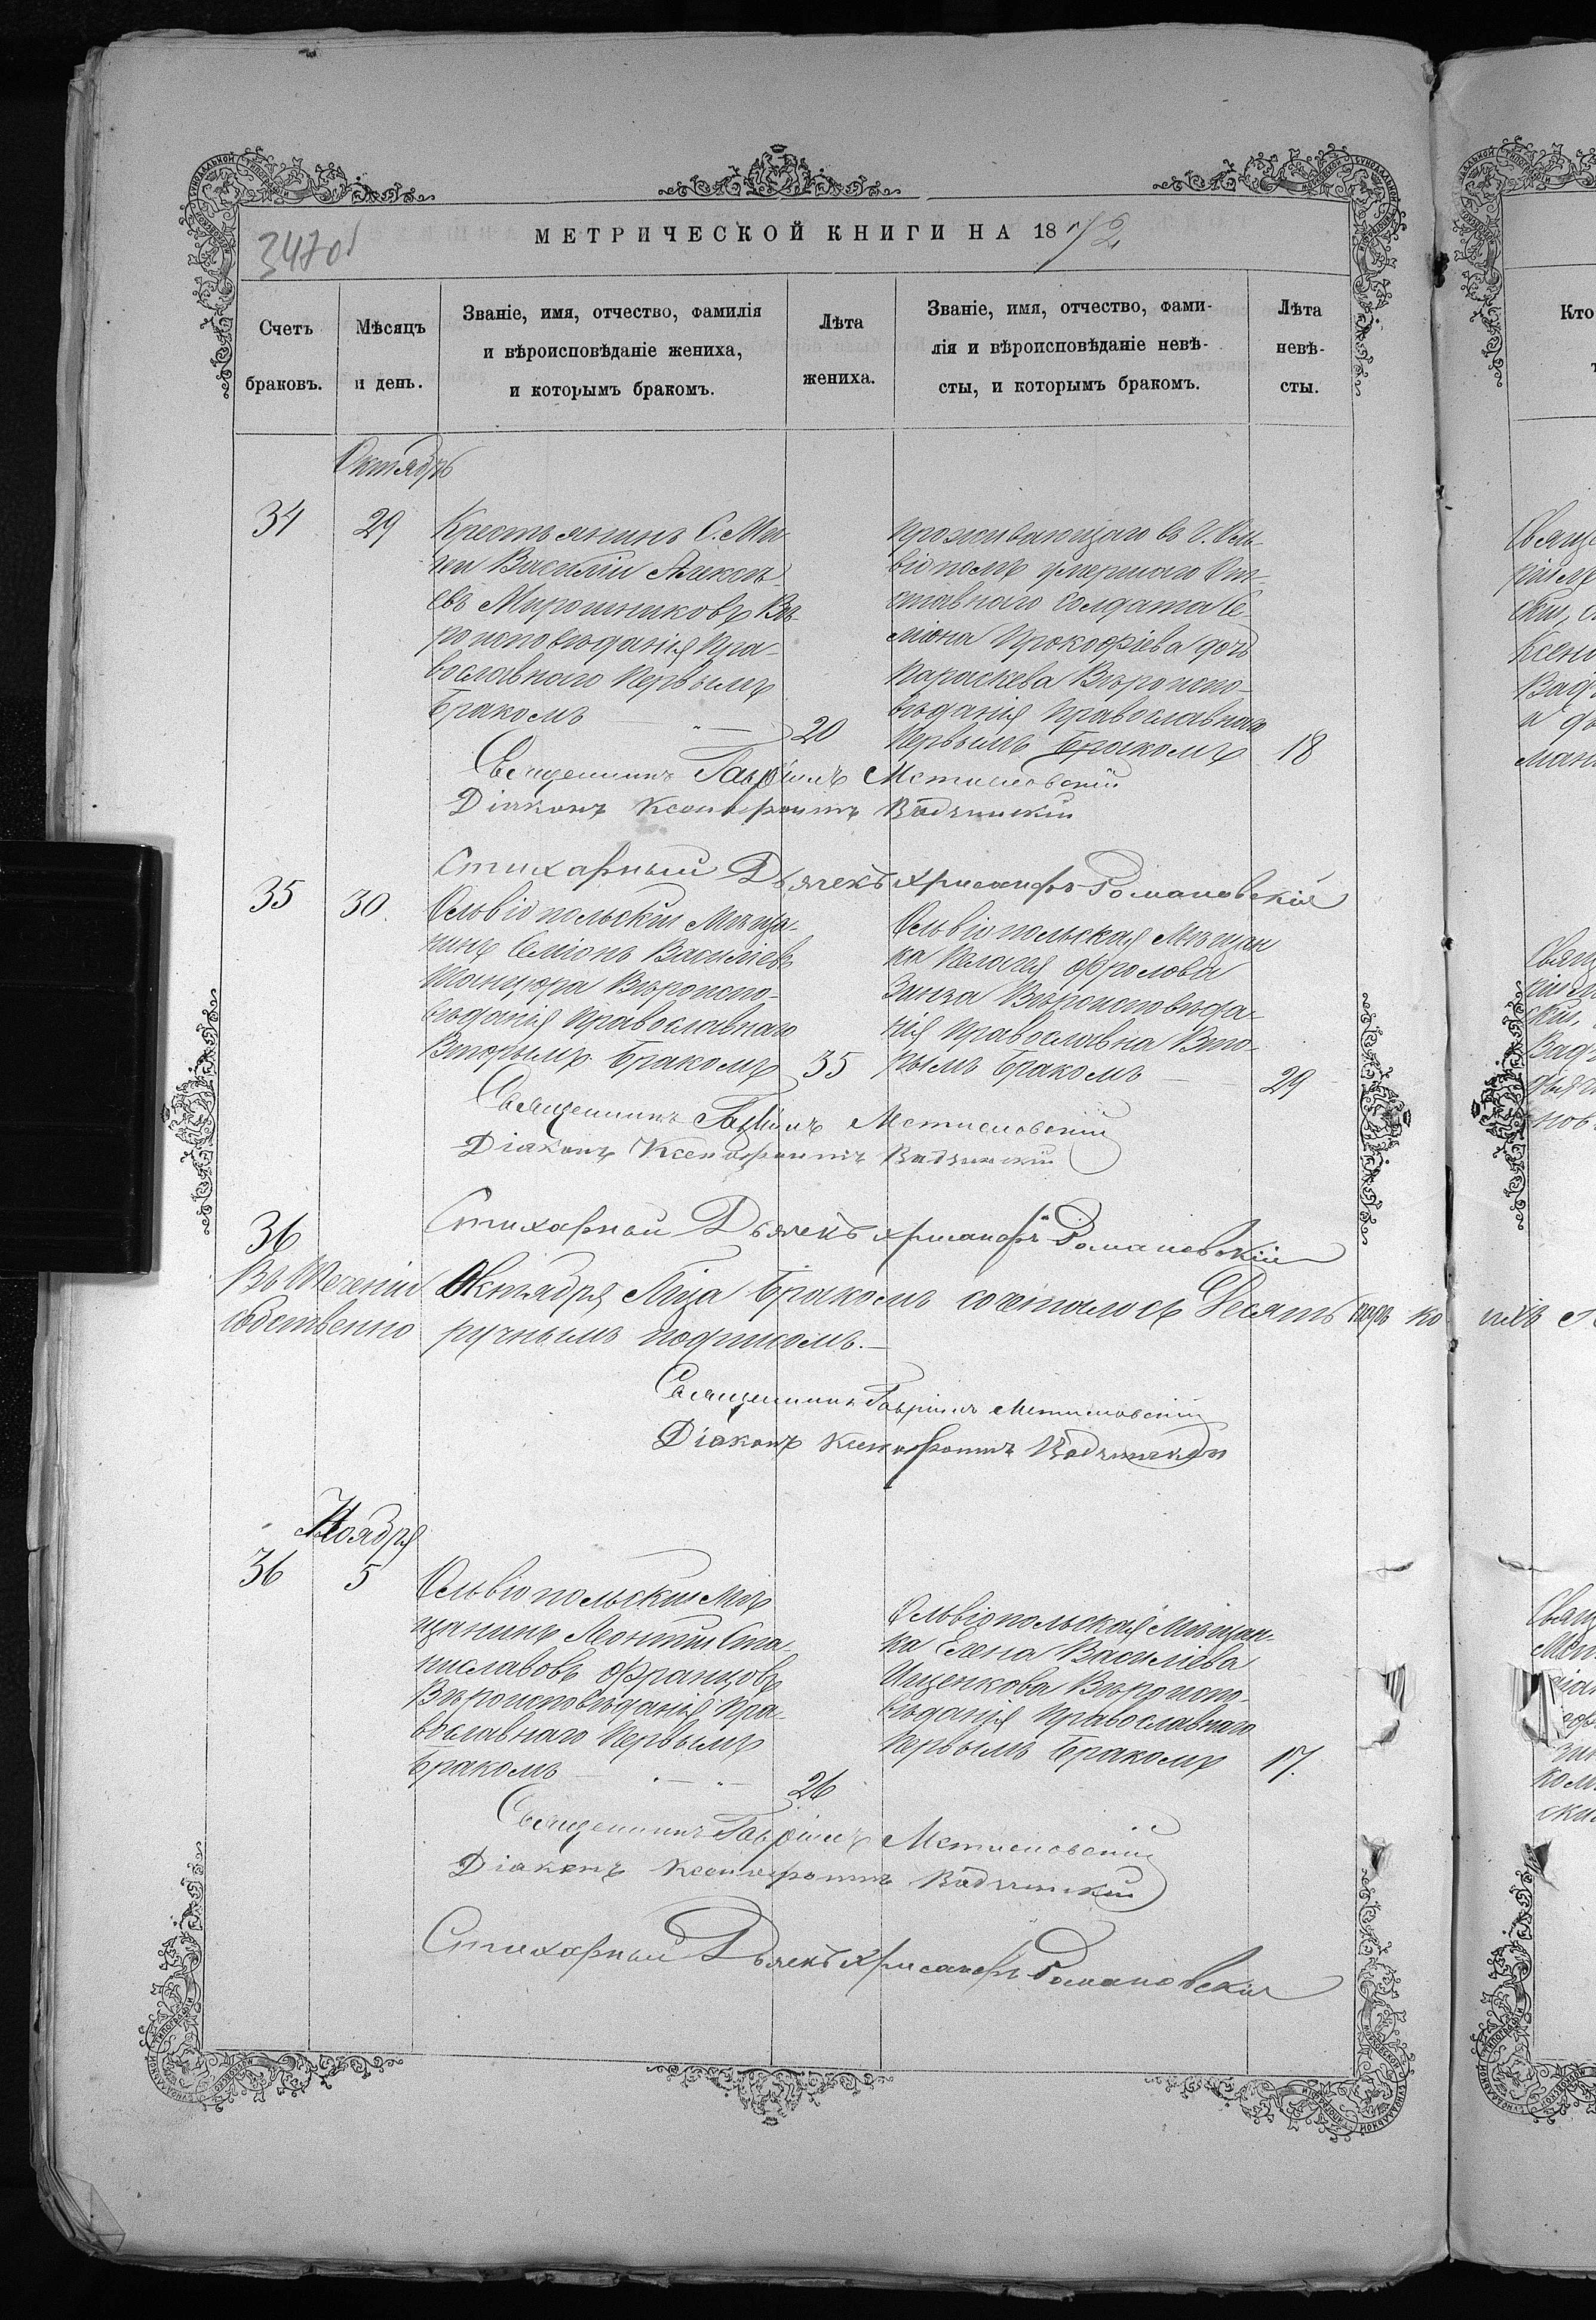 3470
МЕТРИЧЕСКОЙ КНИГИ НА 1872
Счетъ браковъ.
Мѣсяцъ и день.
Званіе, имя, отчество, фамилія
и вѣроисповѣданіе жениха,
и которымъ бракомъ.
Лѣта жениха.
Званіе, имя, отчество, фами-
лія и вѣроисповѣданіе невѣ-
сты, и которымъ бракомъ.
Лѣта невѣ-
сты.
Кто
Октябрь
34
29
Крестьянинъ С.
Василій Алексѣ-
евъ Мирошниковъ Вѣ-
роисповѣданія Пра-
вославнаго Первымъ
бракомъ
20
проживающаго въ г. Оль-
віополѣ умершаго От-
ставнаго Солдата Се-
міона Прокофіева дочь
Параскева Вѣроиспо-
вѣданія Православнаго
Первымъ бракомъ
18
Священникъ Гавріилъ Мстиславскій
Діаконъ Ксенофонтъ Вадзинскій
Стихарный Дьячекъ Хрисанфъ Романовскій
35
30.
Ольвіопольскій Мѣща-
нинъ Семіонъ Василіевъ
Танцюра Вѣроиспо-
вѣданія Православнаго
Вторымъ бракомъ
35
Ольвіопольская Мѣщан
ка Пелагія Фролова
Вѣроисповѣда-
нія Православна Вто-
рымъ бракомъ
29
Священникъ Гавріилъ Мстиславскій
Діаконъ Ксенофонтъ Вадзинскій
Стихарный Дьячекъ Хрисанфъ Романовскій
36
Въ Теченіи Октября Мца бракомъ сочеталось Десять ко
собственно ручнымъ подписомъ.
Священникъ Гавріилъ Мстиславскій
Діаконъ Ксенофонтъ Вадзинскій
Ноября
36
5
Ольвіопольскій Мѣ
щанинъ Леонтій Ста-
ниславовъ Францовъ
Вѣроисповѣданія Пра-
вославнаго Первымъ
бракомъ
26
Ольвіопольская Мѣщан-
ка Елена Василіева
Ищенкова Вѣроиспо-
вѣданія Православнаго
Первымъ бракомъ
17.
Священникъ Гавріилъ Мстиславскій
Діаконъ Ксенофонтъ Вадзинскій
Стихарный Дьячекъ Хрисанфъ Романовскій